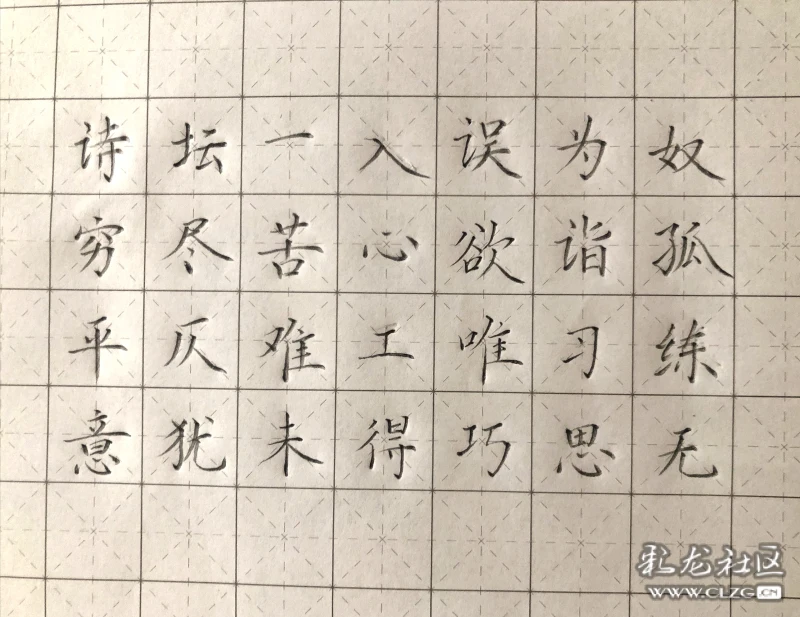 诗坛一入误为奴
穷尽苦心欲诣孤
平仄难工唯习练
意犹未得巧思无
彩龙社区
WWW.CLZG.CN